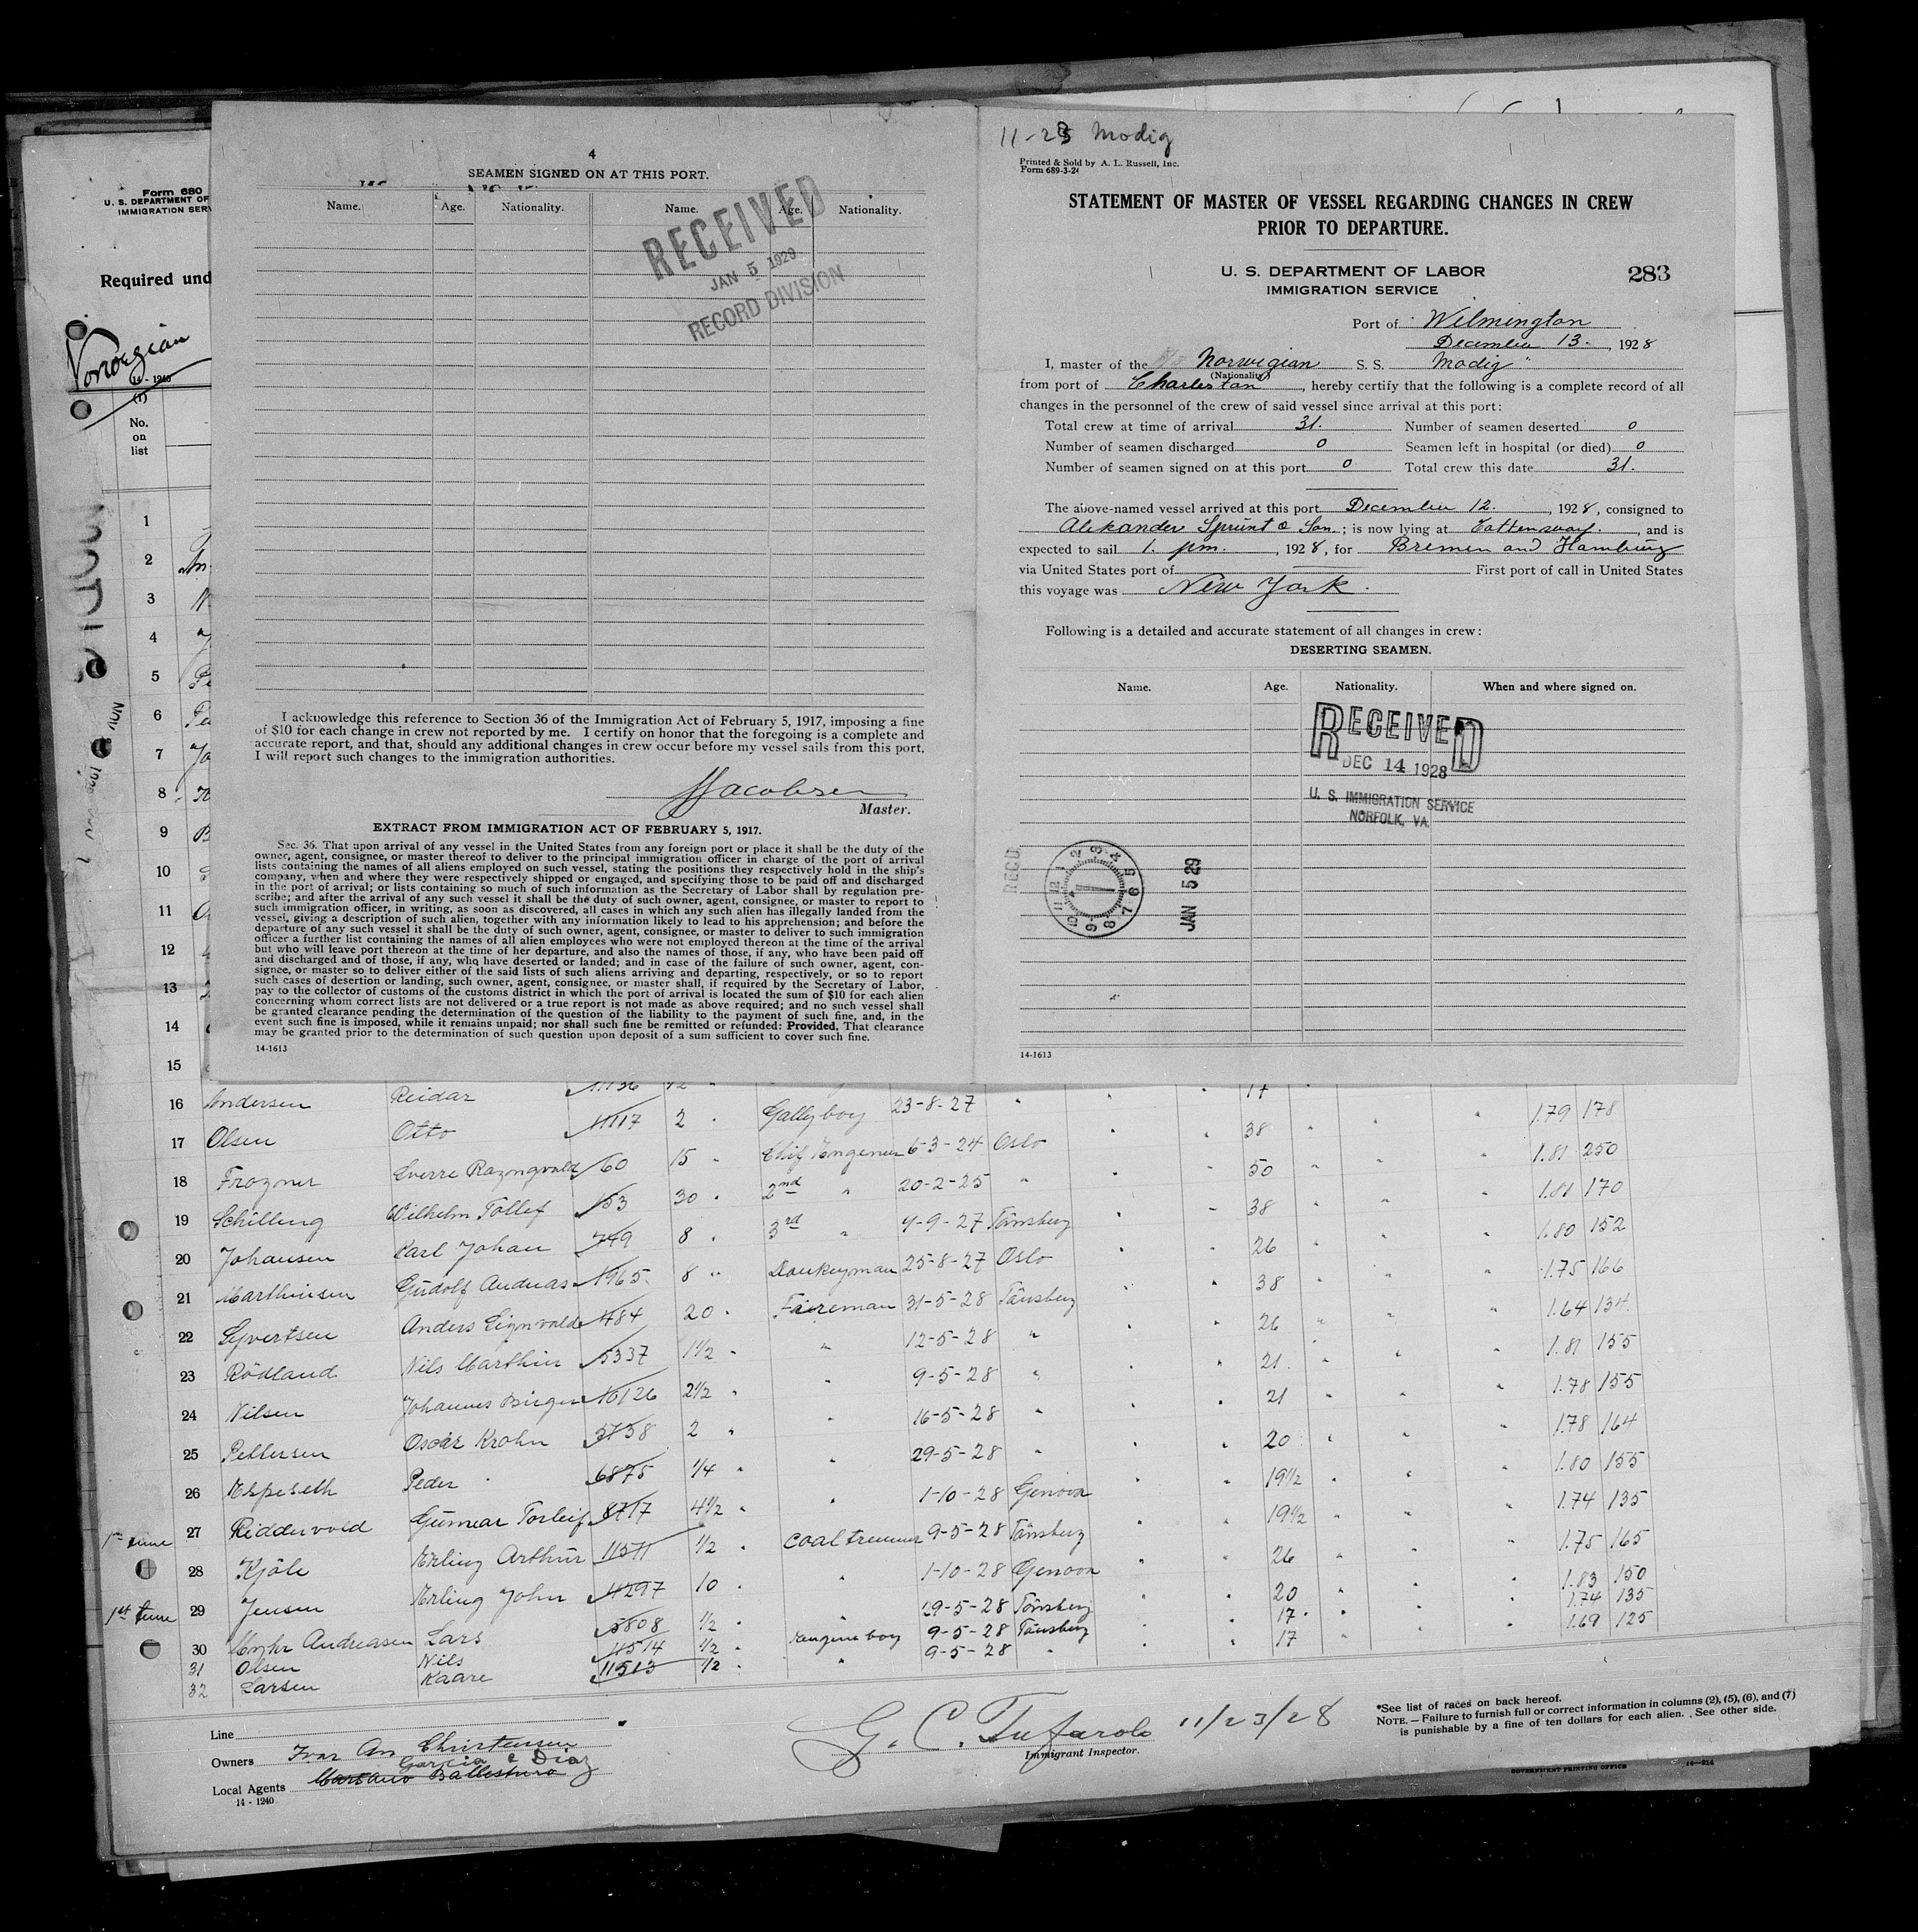 Form 680
U. S. DEPARTMENT OF
IMMIGRATION SERV
Required und
Norwegian
14-1240
(1)
No.
on
list
1
2
3
4
5
6
7
8
9
10
11
12
13
14
15
4
SEAMEN SIGNED ON AT THIS PORT.
Name. Age. Nationality. Name. Age. Nationality.
RECEIVED
JAN 5 1929
RECORD DIVISION
I acknowledge this reference to Section 36 of the Immigration Act of February 5, 1917, imposing a fine
of $10 for each change in crew not reported by me. I certify on honor that the foregoing is a complete and
accurate report, and that, should any additional changes in crew occur before my vessel sails from this port,
I will report such changes to the immigration authorities.
Jacobsen
Master.
EXTRACT FROM IMMIGRATION ACT OF FEBRUARY 5, 1917.
Sec. 36. That upon arrival of any vessel in the United States from any foreign port or place it shall be the duty of the
owner, agent, consignee, or master thereof to deliver to the principal immigration officer in charge of the port of arrival
lists containing the names of all aliens employed on such vessel, stating the positions they respectively hold in the ship's
company, when and where they were respectively shipped or engaged, and specifying those to be paid off and discharged
in the port of arrival; or lists containing so much of such information as the Secretary of Labor shall by regulation pre-
scribe; and after the arrival of any such vessel it shall be the duty of such owner, agent, consignee, or master to report to
such immigration officer, in writing, as soon as discovered, all cases in which any such alien has illegally landed from the
vessel, giving a description of such alien, together with any information likely to lead to his apprehension; and before the
departure of any such vessel it shall be the duty of such owner, agent, consignee, or master to deliver to such immigration
officer a further list containing the names of all alien employees who were not employed thereon at the time of the arrival
but who will leave port thereon at the time of her departure, and also the names of those, if any, who have been paid off
and discharged and of those, if any, who have deserted or landed; and in case of the failure of such owner, agent, con-
signee, or master so to deliver either of the said lists of such aliens arriving and departing, respectively, or so to report
such cases of desertion or landing, such owner, agent, consignee, or master shall, if required by the Secretary of Labor,
pay to the collector of customs of the customs district in which the port of arrival is located the sum of $10 for each alien
concerning whom correct lists are not delivered or a true report is not made as above required; and no such vessel shall
be granted clearance pending the determination of the question of the liability to the payment of such fine, and, in the
event such fine is imposed, while it remains unpaid; nor shall such fine be remitted or refunded: Provided, That clearance
may be granted prior to the determination of such question upon deposit of a sum sufficient to cover such fine.
14-1613
11-23 Modig
Printed & Sold by A. L. Russell, Inc.
Form 689-3-24
STATEMENT OF MASTER OF VESSEL REGARDING CHANGES IN CREW
PRIOR TO DEPARTURE.
U. S. DEPARTMENT OF LABOR
IMMIGRATION SERVICE
283
Port of Wilmington
December 13., 1928
I, master of the Norwegian S. S. Modig
(Nationality)
from port of Charlestan, hereby certify that the following is a complete record of all
changes in the personnel of the crew of said vessel since arrival at this port:
Total crew at time of arrival 31. Number of seamen deserted 0
Number of seamen discharged 0 Seamen left in hospital (or died) 0
Number of seamen signed on at this port 0 Total crew this date 31.
The above-named vessel arrived at this port December 12., 1928, consigned to
Alexander Sprunt & Son; is now lying at , and is
expected to sail 1. pm., 1928, for Bremen and Hamburg
via United States port of First port of call in United States
this voyage was New York.
Following is a detailed and accurate statement of all changes in crew:
DESERTING SEAMEN.
Name. Age. Nationality. When and where signed on.
RECEIVED
DEC 14 1928
U. S. IMMIGRATION SERVICE
NORFOLK, VA.
REC'D.
1 2 3 4 5 6 7 8 9 10 11 12
JAN 5 29
14-1613
16 Andersen Reidar 11136 12 " 17
17 Olsen Otto 11117 2 " Gallyboy 23-8-27 " " " 38 " " " 1.79 178
18 Frozner Sverre Razngvald 60 15 " Chif Engener 6-3-24 Oslo " " 50 " " " 1.81 250
19 Schilling Wilhelm Tollef 153 30 " 2nd " 20-2-25 " " " 38 " " " 1.81 170
20 Johansen Karl Johan 749 8 " 3rd " 4-9-27 Tönsberg " " 26 " " " 1.80 152
21 Marthinsen Gudolf Andreas 1965 8 " Donkeyman 25-8-27 Oslo " " 38 " " " 1.75 166
22 Syvertsen Anders Eignvald 484 20 " Faireman 31-5-28 Tönsberg " " 26 " " " 1.64 134
23 Rödland Nils Marthin 5337 1 1/2 " " 12-5-28 " " " 21 " " " 1.81 155
24 Nilsen Johannes Birger 10126 2 1/2 " " 9-5-28 " " " 21 " " " 1.78 155
25 Pettersen Oscar Krohn 3738 2 " " 16-5-28 " " " 20 " " " 1.78 164
26 Espeseth Peder 6875 1/4 " " 29-5-28 " " " 19 1/2 " " " 1.80 155
27 Riddervold Gunnar Torleif 8717 4 1/2 " " 1-10-28 Genova " " 19 1/2 " " " 1.74 135
28 Kjöle Erling Arthur 11571 1/2 " Coaltrimmer 9-5-28 Tönsberg " " 26 " " " 1.75 165
29 Jensen Erling John 4297 10 " " 1-10-28 Genova " " 20 " " " 1.83 150
30 Myhr Andreasen Lars 5808 1/2 " " 29-5-28 Tönsberg " " 17 " " " 1.74 135
31 Olsen Nils 11514 1/2 " Engineboy 9-5-28 Tönsberg " " 17 " " " 1.69 125
32 Larsen Kaare 11513 1/2 " " 9-5-28 "
1st time
1st time
Line
Owners Ivar An Christensen
Garcia & Diaz
Local Agents
14-1240
G. C. Tufarolo 11/23/28
Immigrant Inspector.
*See list of races on back hereof.
NOTE.—Failure to furnish full or correct information in columns (2), (5), (6), and (7)
is punishable by a fine of ten dollars for each alien. See other side.
GOVERNMENT PRINTING OFFICE 14-914